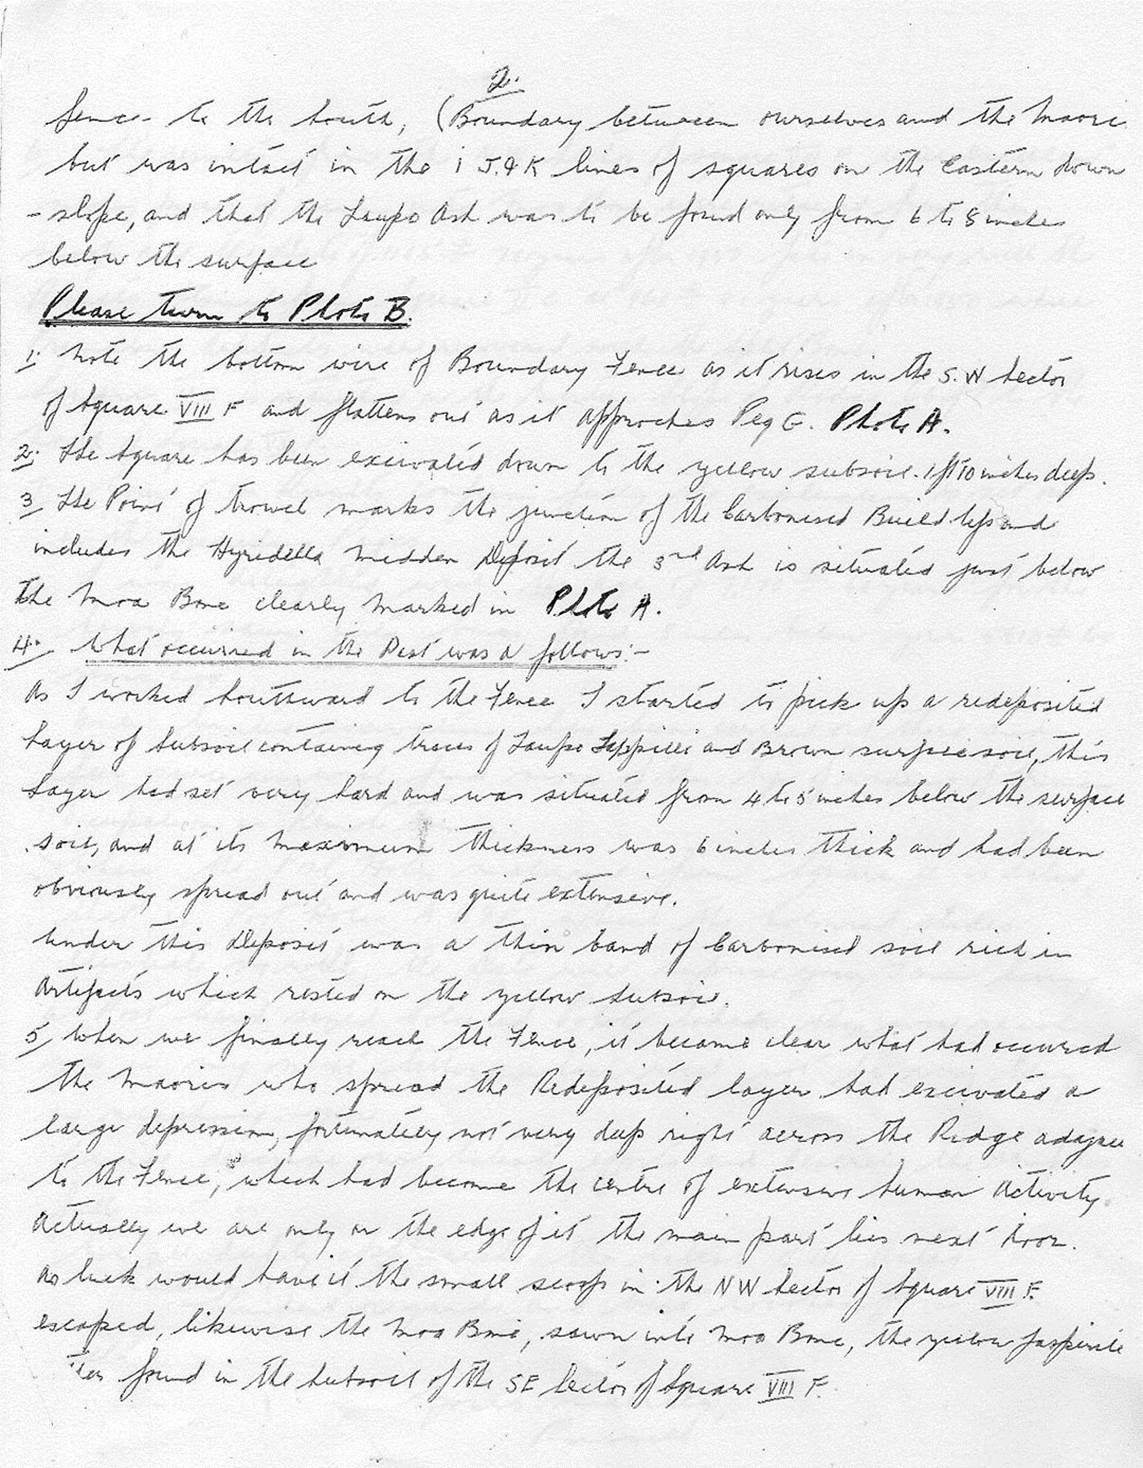 2.
fence to the South, (Boundary between ourselves and the Maoris
but was intact in the I J. & K lines of squares on the Eastern down
- slope, and that the Taupo Ash was to be found only from 6 to 8 inches
below the surface
Please turn to Photo B.
1. Note the bottom wire of Boundary Fence as it rises in the S.W Sector
of Square VIII F and flattens out as it approches Peg G. Photo A.
2. The Square has been excivated down to the yellow subsoil. 1ft 10 inches deep.
3 The Point of trowel marks the junction of the Carbonised Build up and
includes the Hyridella Midden Deposit the 3rd Ash is situated just below
The Moa Bone clearly Marked in Photo A.
4. What occurred in the Past was a follows:-
As I worked Southward to the Fence I started to pick up a redeposited
Layer of Subsoil containing traces of Taupo Lappilli and Brown surface soil, this
Layer had set very hard and was situated from 4 to 5 inches below the surface
soil, and at its Maximum thickness was 6 inches thick and had been
obviously spread out and was quite extensive.
Under this Deposit was a thin band of Carbonised soil rich in
Artifacts which rested on the yellow Subsoil.
5, When we finally reach the Fence, it became clear what had occurred
the Maories who spread the Redeposited layer had excivated a
large depression, fortunately not very deep right across the Ridge
to the Fence, which had become the centre of extensive human activity.
Actually we are only on the edge of it the main part lies next door.
As luck would have it the small scoop in the NW Sector of Square VIII F.
escaped, likewise the Moa Bone, sawn into Moa Bone, the yellow
found in the Subsoil of the SE Sector of Square VIII F.